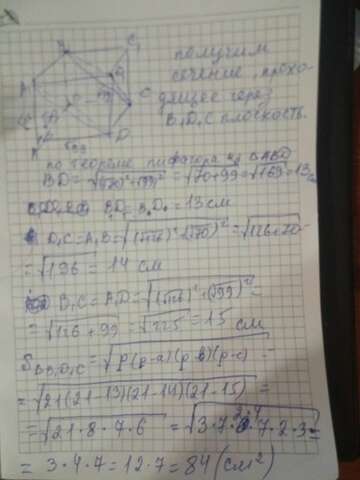 B₁
C₁
получим
сечение, прохо-
дящее через
B₁D₁C плоскость.
C
D
по теореме пифагора из ΔABD
BD = √(√70)² + (√99)² = √70+99 = √169 = 13 см
B₁D₁ = 13 см
D₁C = A₁B = √(√126)² + (√70)² = √126+70 =
= √196 = 14 см
B₁C = A₁D = √(√126)² + (√99)² =
= √126+99 = √225 = 15 см
S B₁D₁C = √p(p-a)(p-b)(p-c) =
= √21(21-13)(21-14)(21-15) =
= √21·8·7·6 = √3·7·2·4·7·2·3 =
= 3·4·7 = 12·7 = 84 (см²)